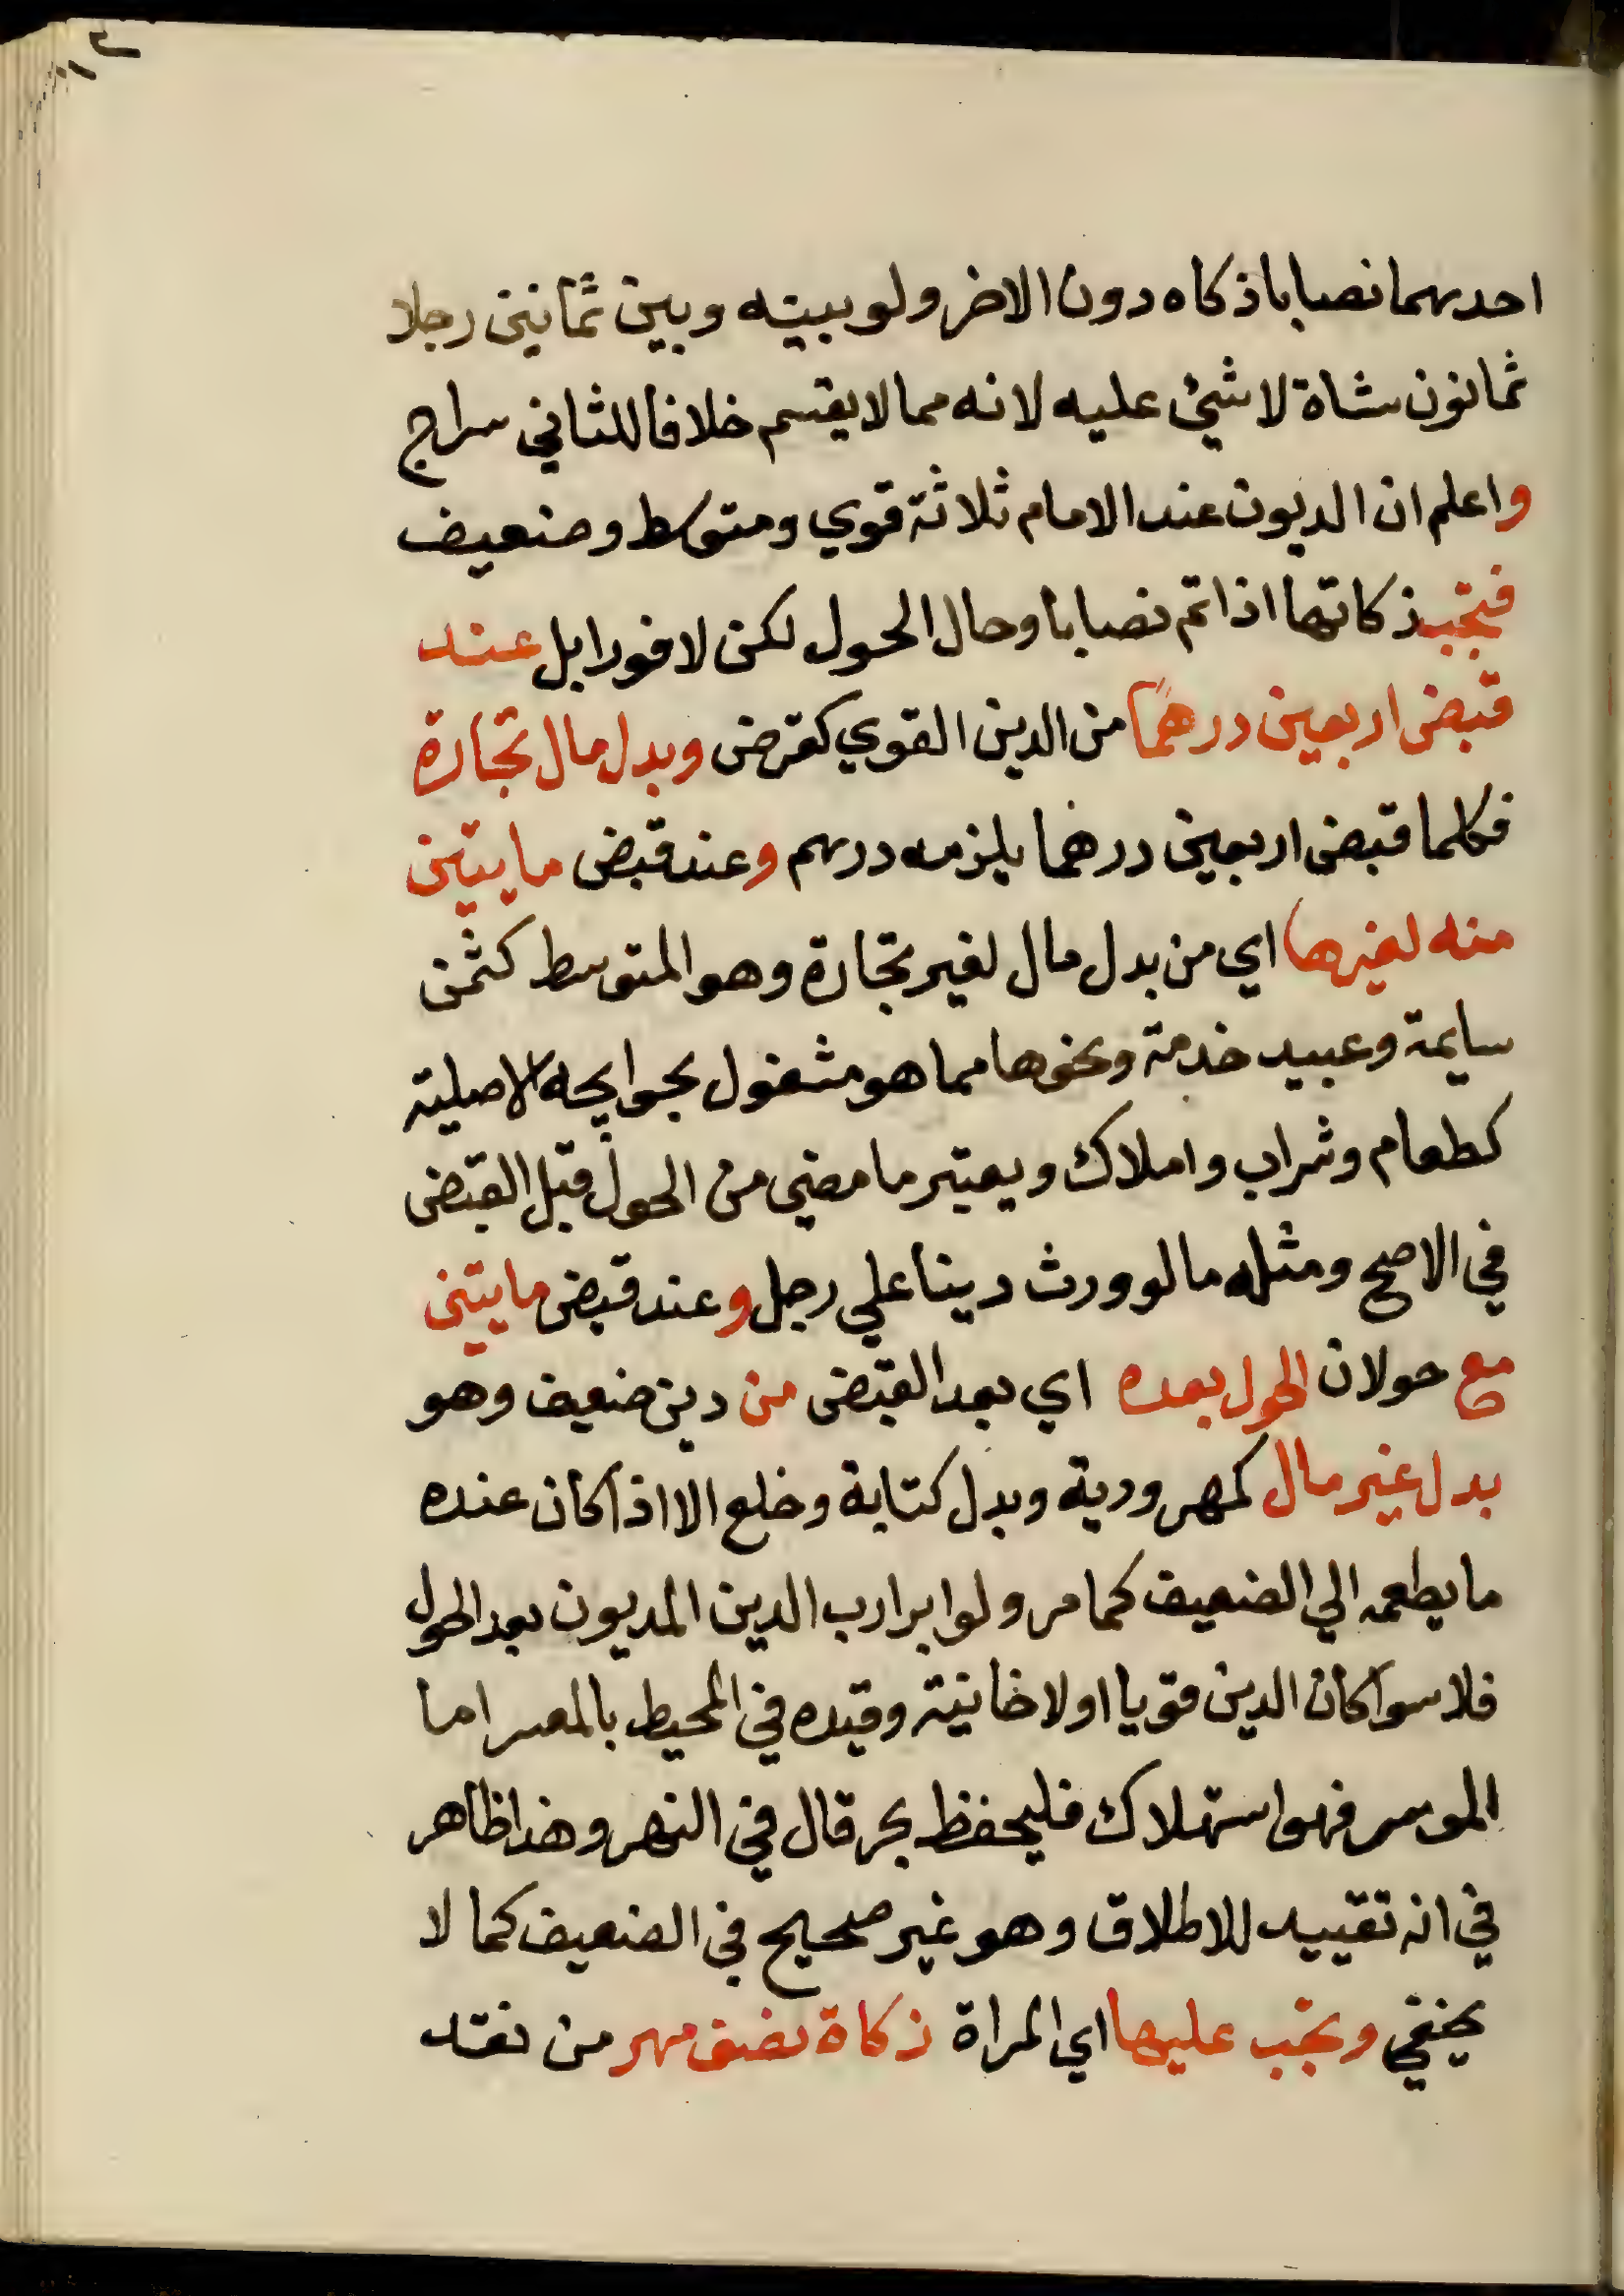 احدهما نصابا زكاه دون الاخر ولو بينه وبين ثمانين رجلا
ثمانون شاة لا شئ عليه لانه مما لا يقسم خلافا للثاني سراج
واعلم ان الديون عند الامام ثلاثة قوي ومتوسط وضعيف
فتجب زكاتها اذا تم نصابا وحال الحول لكن لا فورا بل عند
قبض اربعين درهما من الدين القوي كقرض وبدل مال تجارة
فكلما قبض اربعين درهما يلزمه درهم وعند قبض مايتين
منه لغيرها اي من بدل مال لغير تجارة وهو المتوسط كثمن
سايمة وعبيد خدمة ونحوها مما هو مشغول بحوايجه الاصلية
كطعام وشراب واملاك ويعتبر ما مضي من الحول قبل القبض
في الاصح ومثله ما لو ورث دينا علي رجل وعند قبض مايتين
مع حولان الحول بعده اي بعد القبض من دين ضعيف وهو
بدل غير مال كمهر ودية وبدل كتابة وخلع الا اذا كان عنده
ما يطعمه الي الضعيف كما مر ولو ابرا رب الدين المديون بعد الحول
فلا سوا كان الدين قويا او لا خانية وقيده في المحيط بالمعسر اما
الموسر فهو استهلاك فليحفظ بحر قال في النهر وهذا ظاهر
في انه تقييد للاطلاق وهو غير صحيح في الضعيف كما لا
يخفي وتجب عليها اي المراة زكاة نصف مهر من نقد